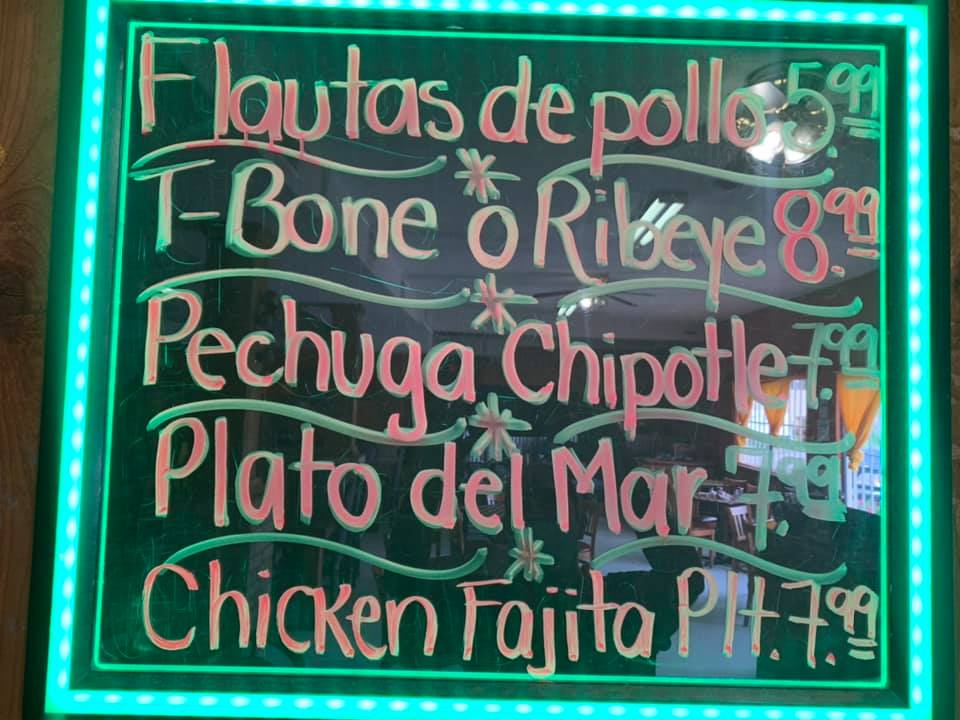 Flautas de pollo 5.99
T-Bone o Ribeye 8.99
Pechuga Chipotle 7.99
Plato del Mar 7.99
Chicken Fajita Plt. 7.99